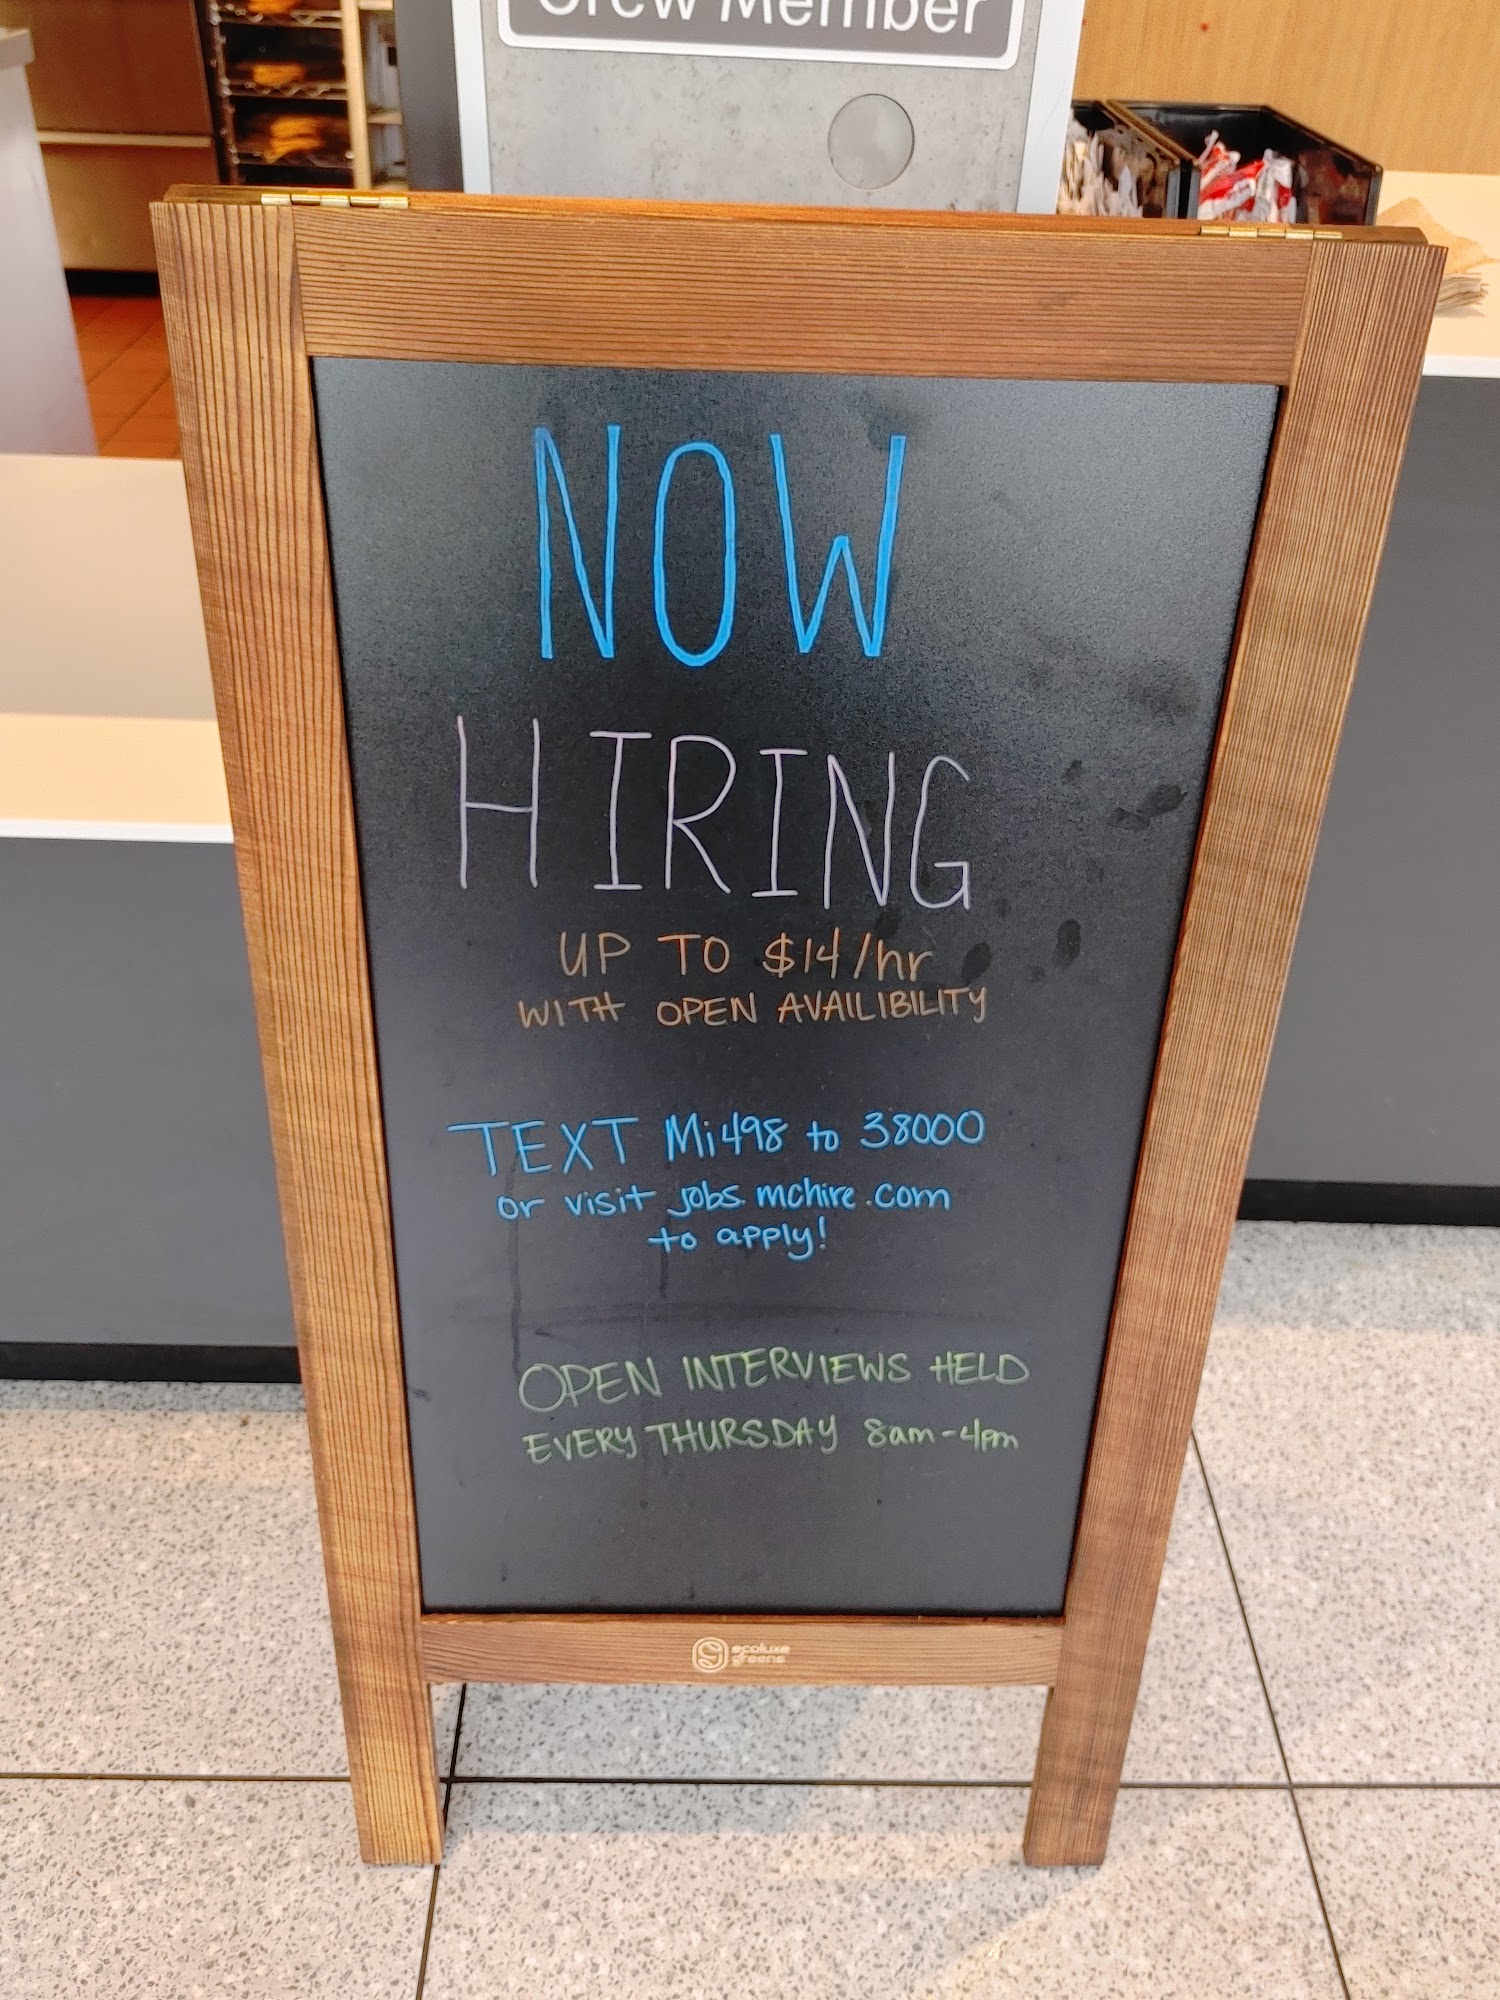 Crew Member
NOW
HIRING
UP TO $14/hr
WITH OPEN AVAILIBILITY
TEXT Mi498 to 38000
or visit jobs.mchire.com
to apply!
OPEN INTERVIEWS HELD
EVERY THURSDAY 8am-4pm
ecoluxe
greens